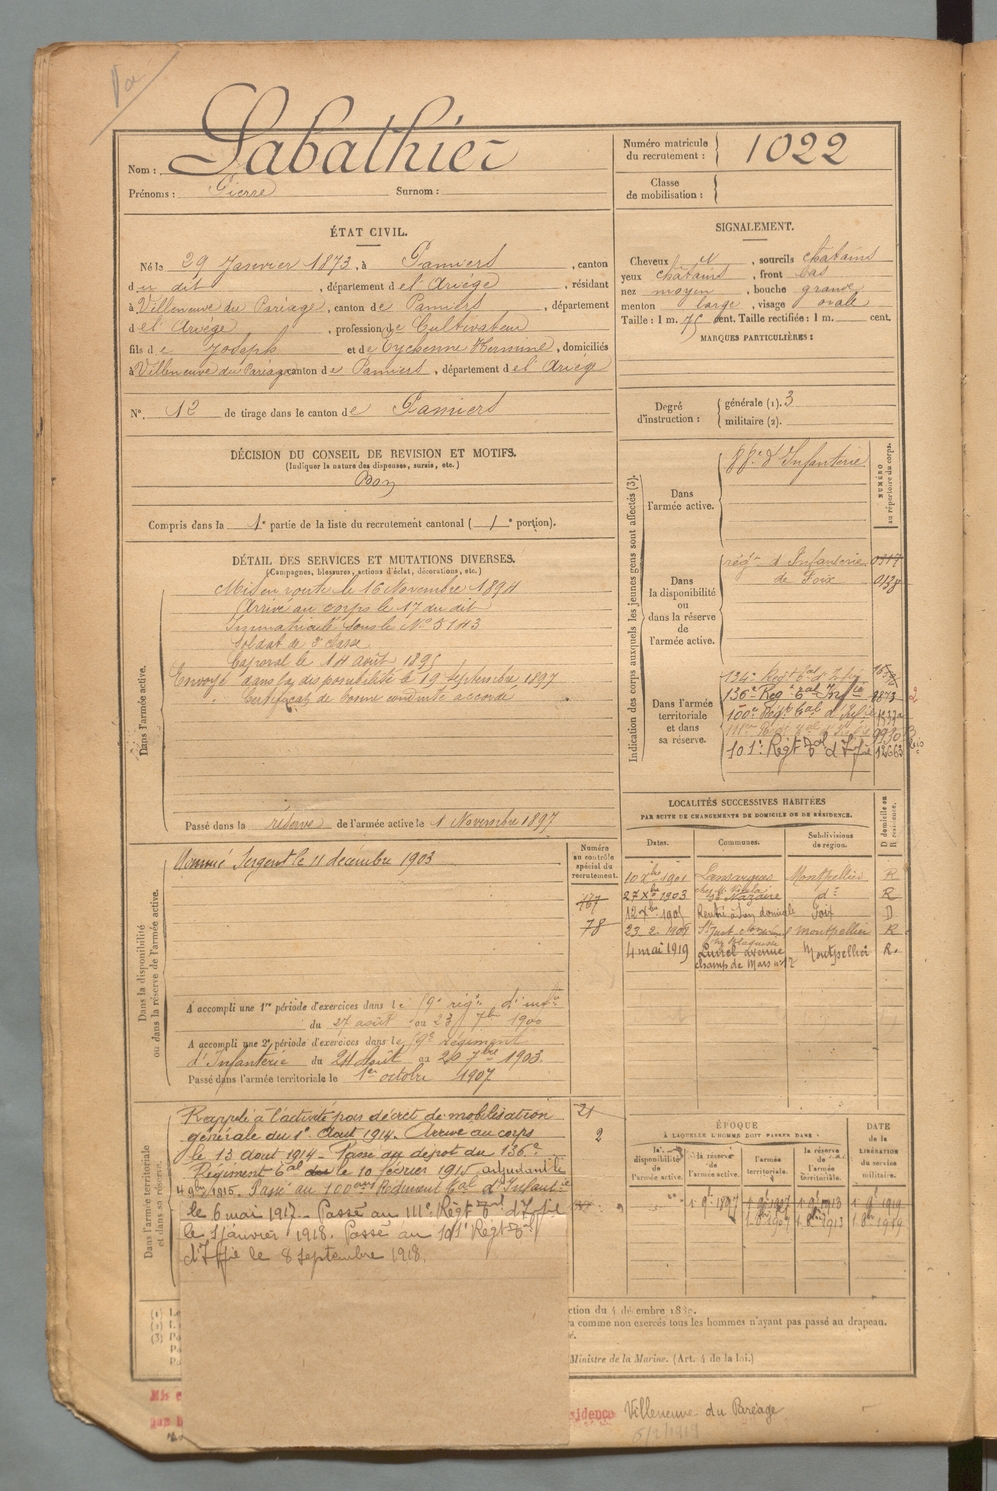 Nom : Labathier
Prénoms : Pierre Surnom :
Numéro matricule du recrutement : 1022
Classe de mobilisation :
ÉTAT CIVIL.
Né le 29 Janvier 1873, à Pamiers, canton
du dit, département de l'Ariège, résidant
à Villeneuve du Paréage, canton de Pamiers, département
de l'Ariège, profession de Cultivateur
fils de Joseph et de Eychenne Hermine, domiciliés
à Villeneuve du Paréage canton de Pamiers, département de l'Ariège
N°. 12 de tirage dans le canton de Pamiers
SIGNALEMENT.
Cheveux N, sourcils chatains
yeux chatains, front bas
nez moyen, bouche grande
menton large, visage ovale
Taille : 1 m. 75 cent. Taille rectifiée : 1 m. cent.
MARQUES PARTICULIÈRES :
Degré d'instruction : générale (1). 3
militaire (2).
DÉCISION DU CONSEIL DE REVISION ET MOTIFS.
(Indiquer la nature des dispenses, sursis, etc.)
Bon
Compris dans la 1e partie de la liste du recrutement cantonal (1e portion).
Indication des corps auxquels les jeunes gens sont affectés (3).
NUMÉRO au répertoire du corps.
Dans l'armée active.
88e d'Infanterie
Dans la disponibilité ou dans la réserve de l'armée active.
régt d'Infanterie
de Foix
Dans l'armée territoriale et dans sa réserve.
134e Regt tal d'Infie
136e Reg t tal Infie
100e Régt tal d'Infie
101e Régt tal d'Ifie 12663
DÉTAIL DES SERVICES ET MUTATIONS DIVERSES.
(Campagnes, blessures, actions d'éclat, décorations, etc.)
Dans l'armée active.
Mis en route le 16 Novembre 1894
Arrivé au corps le 17 du dit
Immatriculé sous le N° 5143
Soldat de 2e classe
Caporal le 14 août 1895
Envoyé dans la disponibilité le 19 Septembre 1897
Certificat de bonne conduite accordé
Passé dans la réserve de l'armée active le 1 Novembre 1897
Dans la disponibilité ou dans la réserve de l'armée active.
Nommé Sergent le 11 décembre 1903
Numéro au contrôle spécial du recrutement.
167
78
A accompli une 1re période d'exercices dans le 9e rég. d'inf.
du 27 août au 23 7bre 1900
A accompli une 2e période d'exercices dans le 9e régiment
d'Infanterie du 24 Août au 20 7bre 1903
Passé dans l'armée territoriale le 1er octobre 1907
LOCALITÉS SUCCESSIVES HABITÉES
PAR SUITE DE CHANGEMENTS DE DOMICILE OU DE RÉSIDENCE.
Dates. Communes. Subdivisions de région. D domicile ou R résidence.
10 Xbre 1901 Lansargues Montpellier R
27 Xbre 1903 St Nazaire d° R
12 Xbre 1905 Rentré à son domicile Foix D
23 2 1908 St Just montpellier R
4 mai 1919 Lunel avenue Montpellier R.
champ de Mars n° 12
Dans l'armée territoriale et dans sa réserve.
Rappelé à l'activité par décret de mobilisation
générale du 1er Aout 1914. Arrivé au corps
le 13 aout 1914 - Passé au dépot du 136e
Régiment tal le 10 février 1915 adjudant le
4 9bre 1915. Passé au 100eme Régiment tal d'Infantie
le 6 mai 1917. Passé au 111e Régt tal d'Ifie
le 1 janvier 1918. Passé au 101e Régt tal
d'Ifie le 8 septembre 1918.
21
2
ÉPOQUE
À LAQUELLE L'HOMME DOIT PASSER DANS :
la disponibilité de l'armée active. la réserve de l'armée active. l'armée territoriale. la réserve de l'armée territoriale.
DATE de la LIBÉRATION du service militaire.
ction du 4 décembre 1889.
a comme non exercés tous les hommes n'ayant pas passé au drapeau.
Ministre de la Marine. (Art. 4 de la loi.)
Mis e
sidence Villeneuve du Paréage